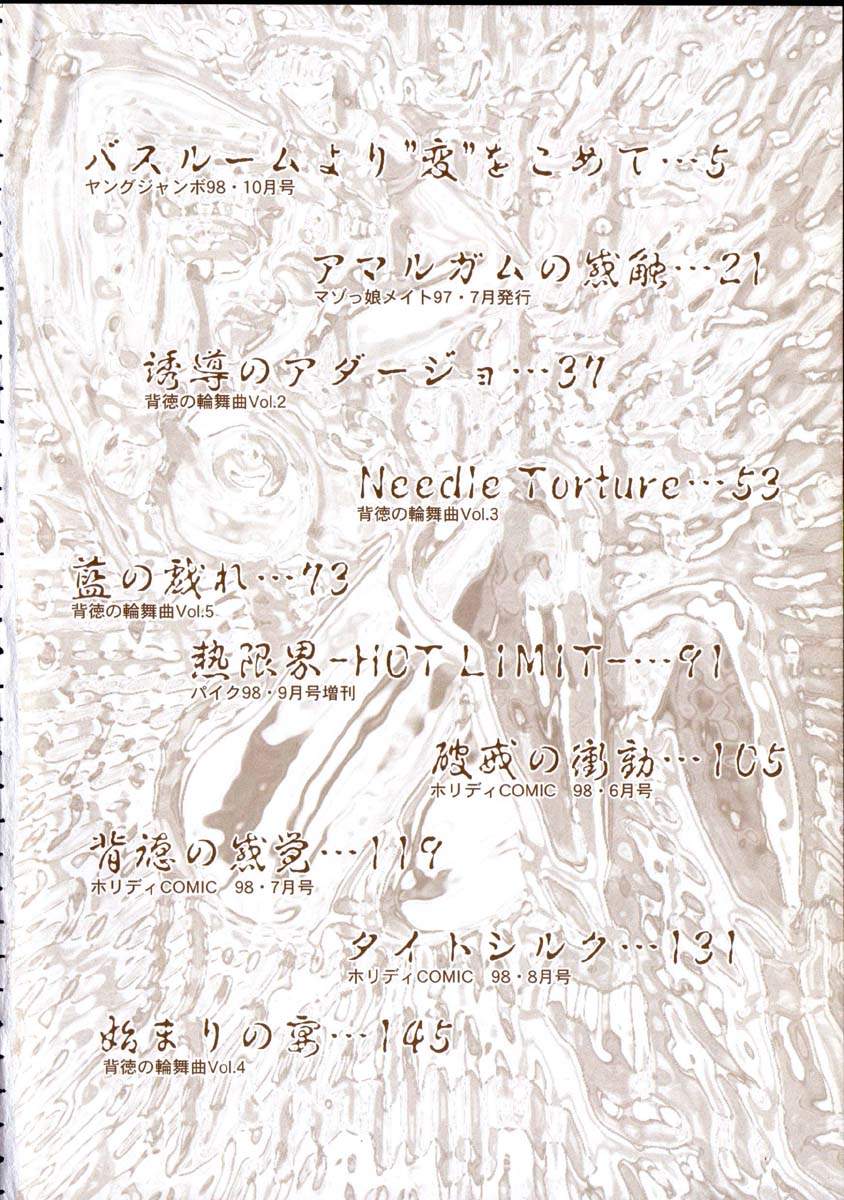 バスルームより"変"をこめて…5
ヤングジャンボ98・10月号
アマルガムの感触…21
マゾっ娘メイト97・7月発行
誘導のアダージョ…37
背徳の輪舞曲Vol.2
Needle Torture…53
背徳の輪舞曲Vol.3
藍の戯れ…73
背徳の輪舞曲Vol.5
熱限界-HOT LiMiT-…91
パイク98・9月号増刊
破戒の衝動…105
ホリディCOMIC　98・6月号
背徳の感覚…119
ホリディCOMIC　98・7月号
タイトシルク…131
ホリディCOMIC　98・8月号
始まりの宴…145
背徳の輪舞曲Vol.4